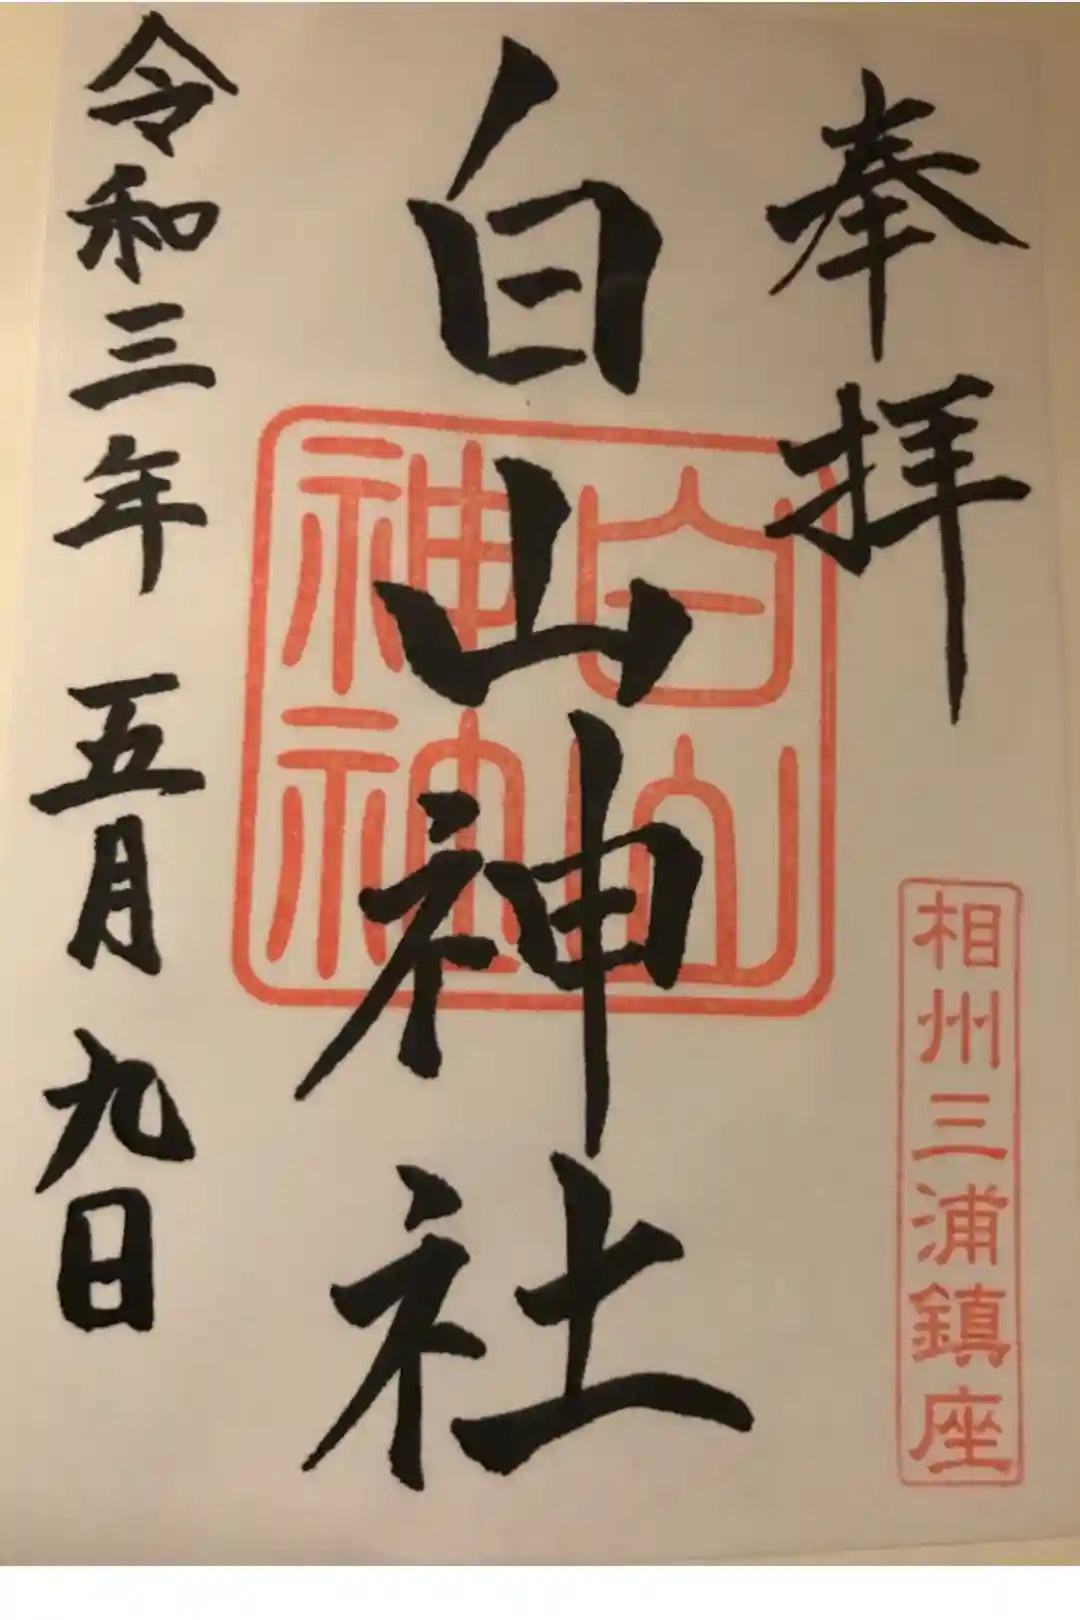 奉拝
相州三浦鎮座
白山神社
白山神社
令和三年 五月 九日